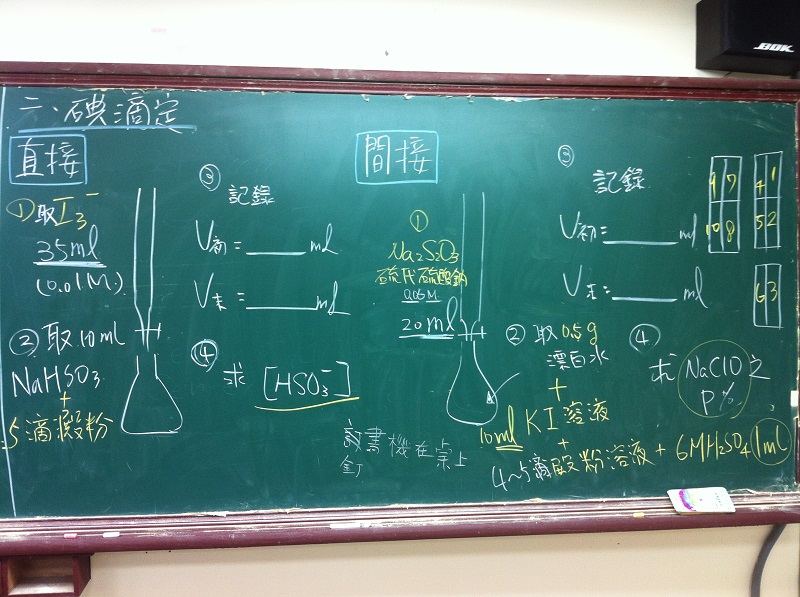 二、碘滴定
直接
①取I₃⁻
35ml
(0.01M)
②取10ml
NaHSO₃
+
5滴澱粉
③
記錄
V初=____ml
V末=____ml
④
求 [HSO₃⁻]
間接
①
Na₂S₂O₃
硫代硫酸鈉
0.05M
20ml
②取0.5g
漂白水
+
10ml KI溶液
+
4~5滴澱粉溶液+6MH₂SO₄ 1ml
③
記錄
V初=____ml
V末=____ml
④
求 NaClO 之
P%
訂書機在桌上
9 7
10 8
4 1
5 2
6 3
BOK